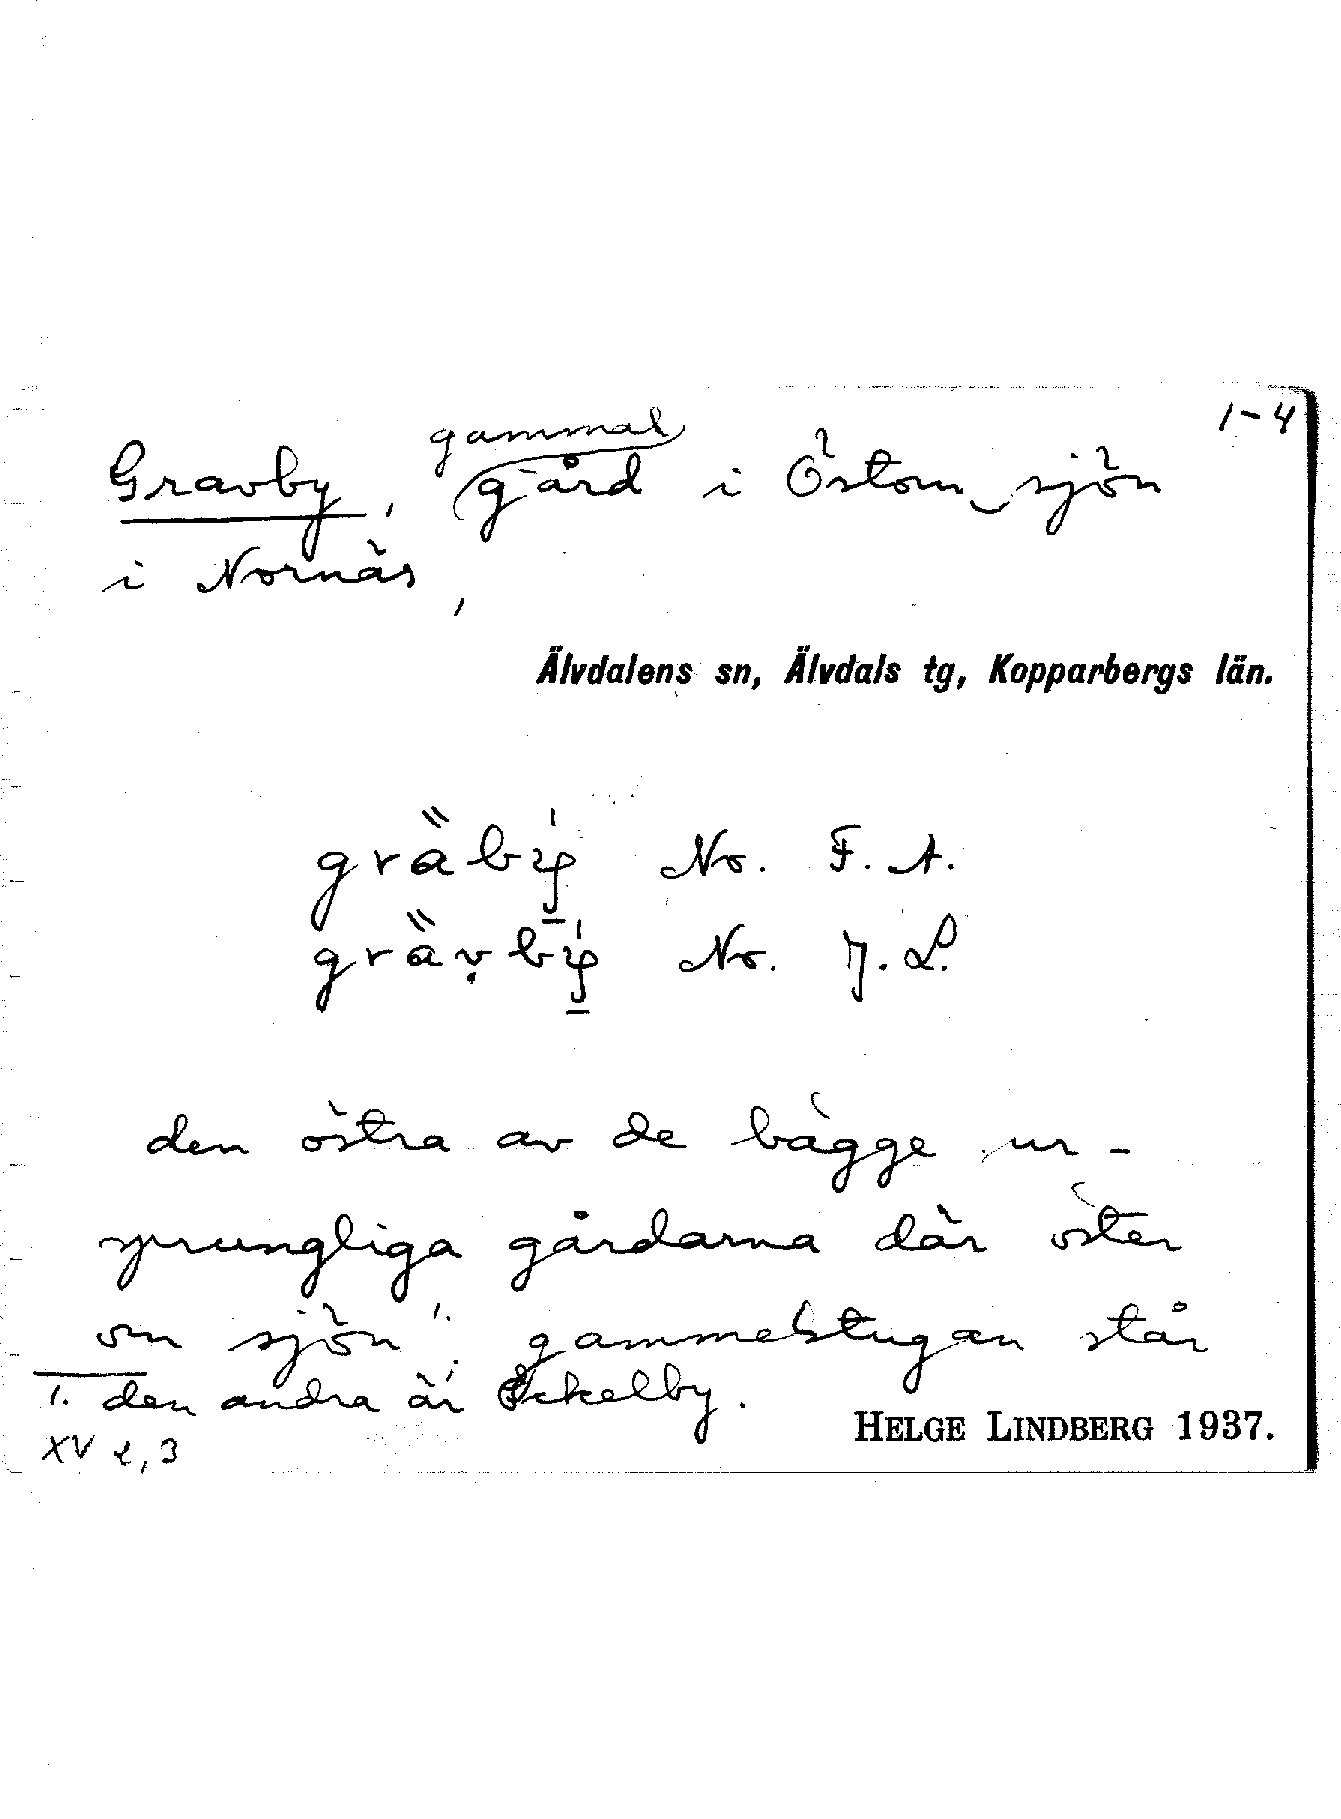 1-4
gammal
Gravby, gård i Östom sjön
i Nornäs,
Älvdalens sn, Älvdals tg, Kopparbergs län.
No. F. A.
No. J. L.
den östra av de bägge ur-
sprungliga gårdarna där öster
om sjön¹; gammelstugan står
1. den andra är Öckelby.
HELGE LINDBERG 1937.
XV 2, 3